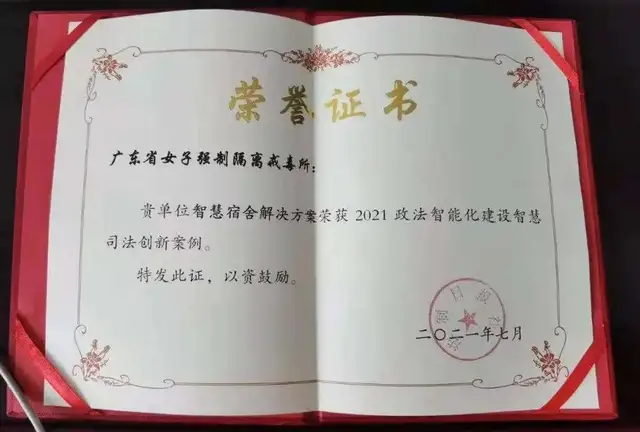 荣誉证书
广东省女子强制隔离戒毒所：
贵单位智慧宿舍解决方案荣获 2021 政法智能化建设智慧
司法创新案例。
特发此证，以资鼓励。
法制日报社
二〇二一年七月